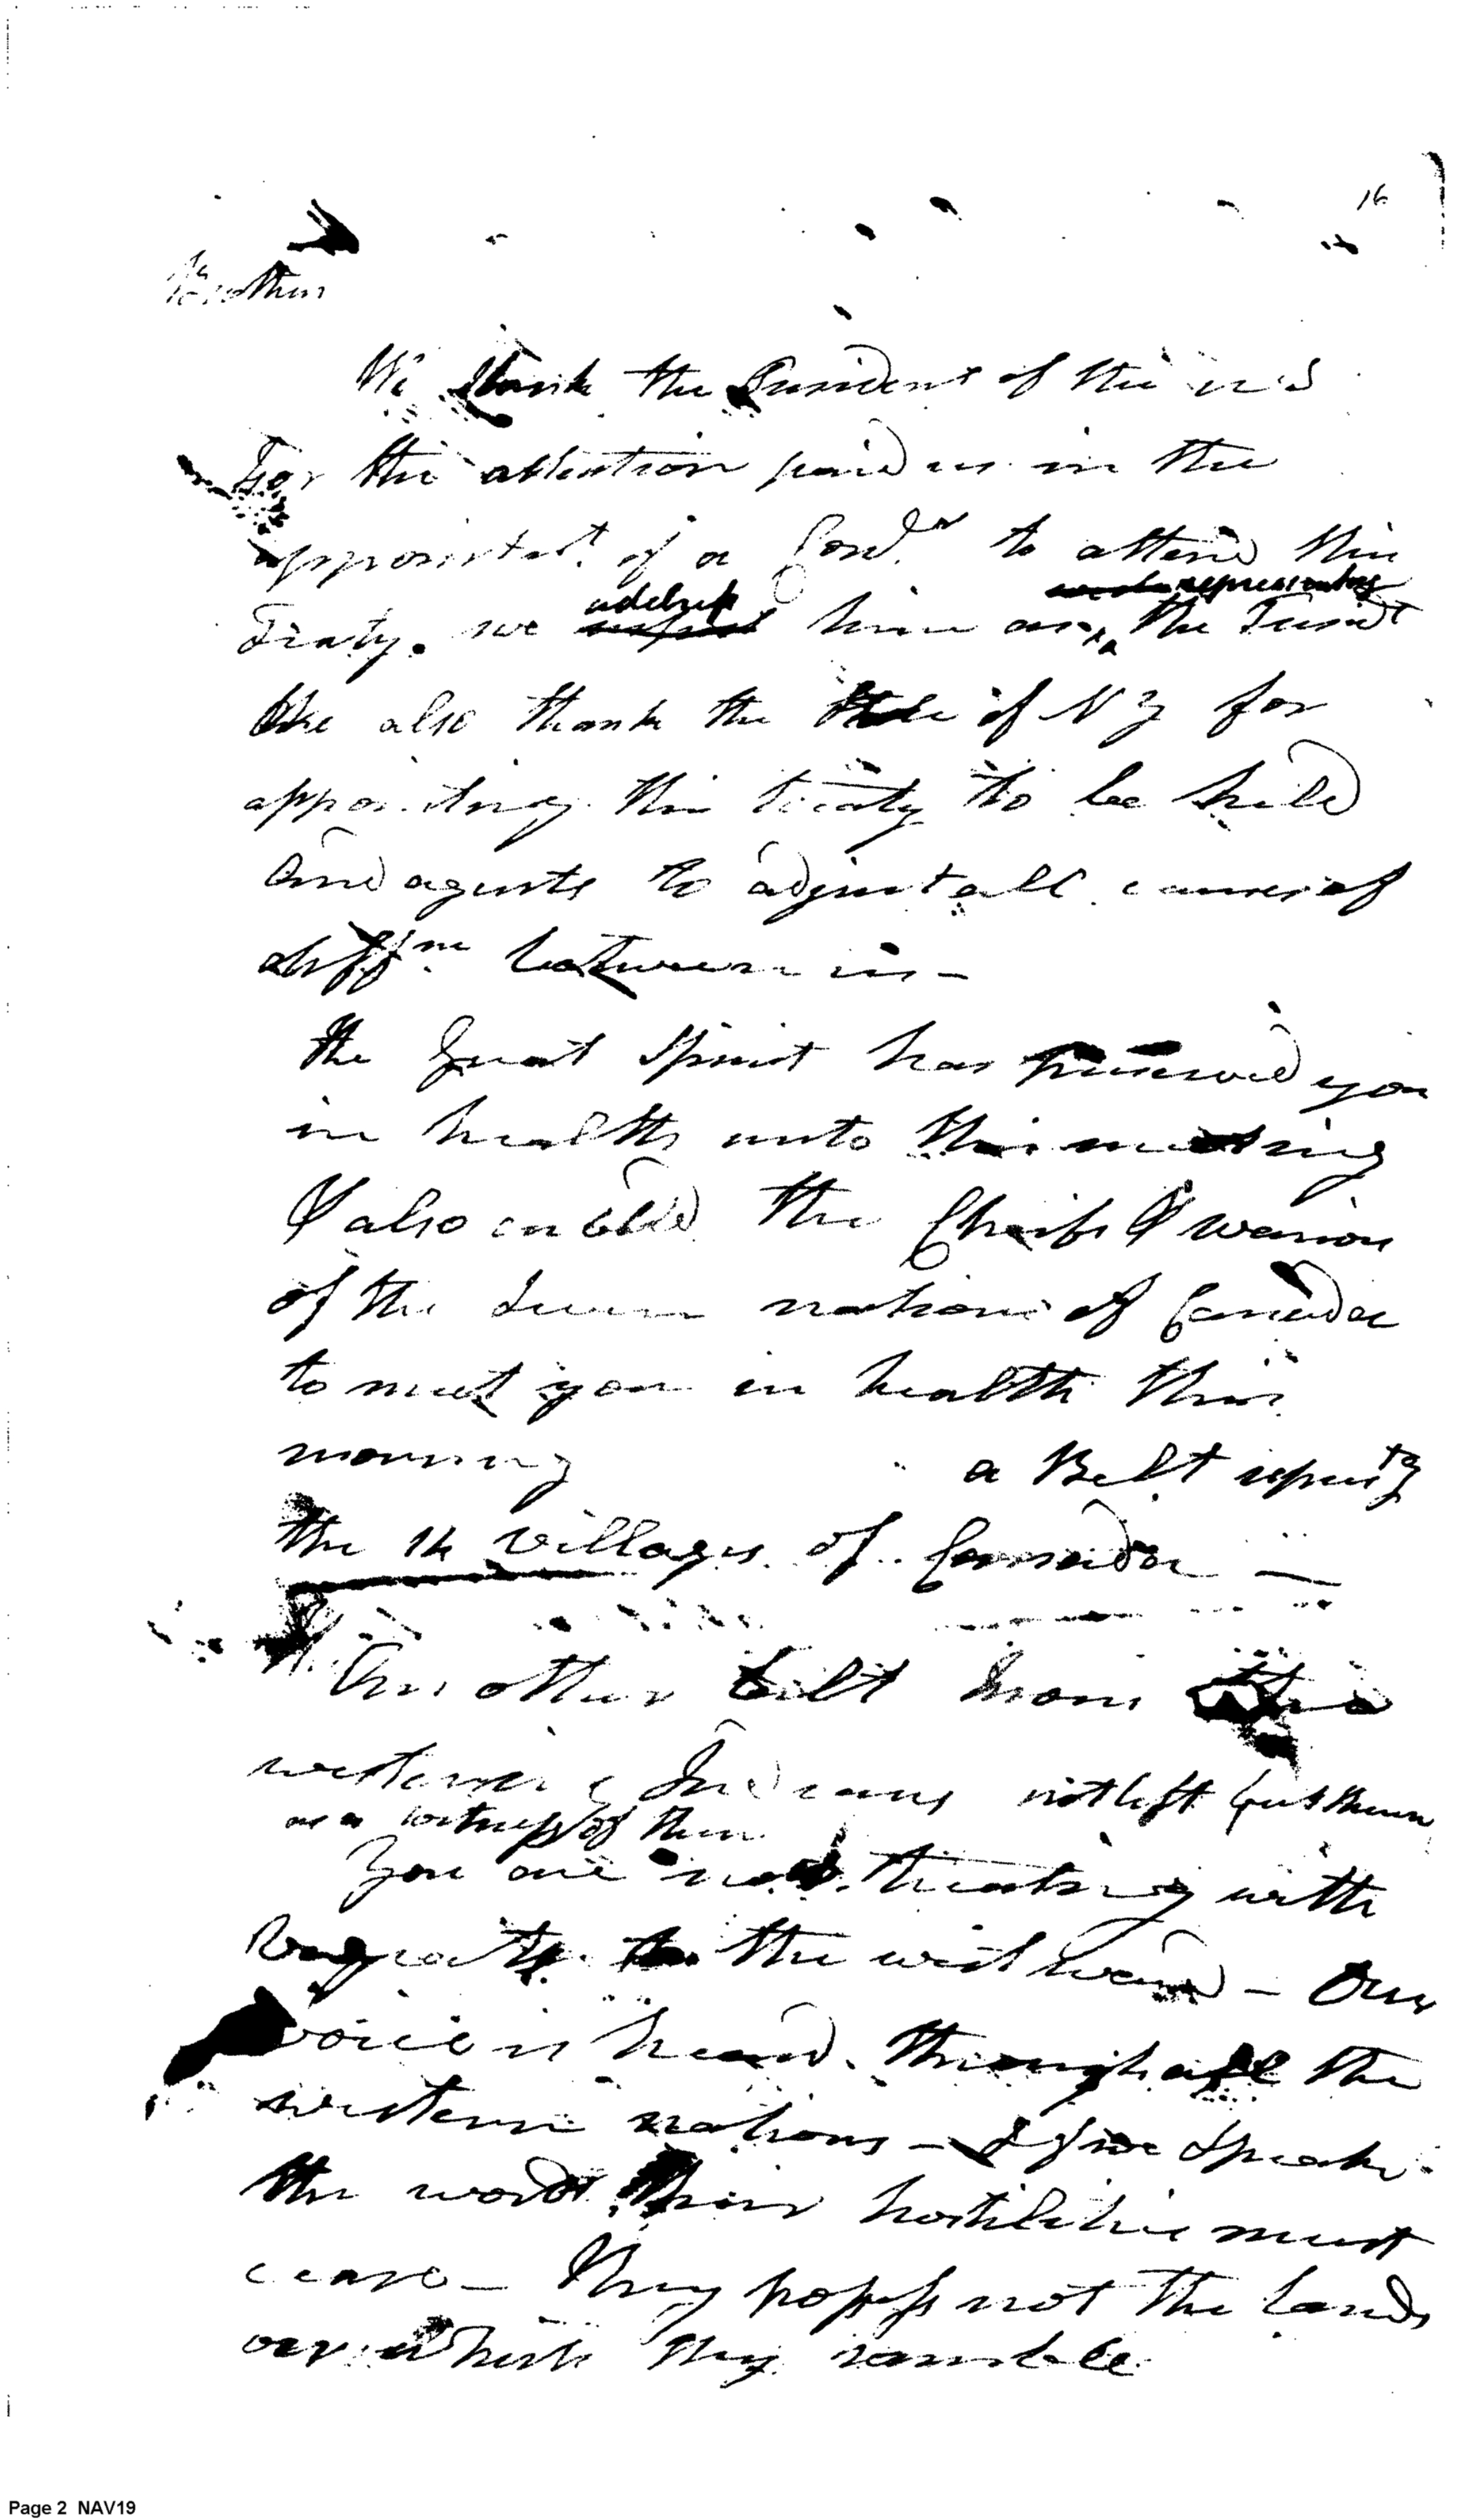 16
Brothers
We thank the President of the U S
For the attention paid us in the
appointmt. of a to attend this
Treaty. we him as the Presidt
We also thank the State of N Y for
appointing this treaty to be held
And agents to adjust all causes of
between us -
the Great Spirit has preserved you
in health unto this meeting
& also enabled the Cheifs & warriors
of the Seven nations of Canada
to meet you in health this
morning a Belt
the 14 villages of Canada —
An other belt from the
western Indians
as a witness of them
You are now treating with
to the westward - Our
voice is heard through all the
western nations - & speak
the word their hostilities must
cease - They possess not the lands
over which they ramble
Page 2 NAV19